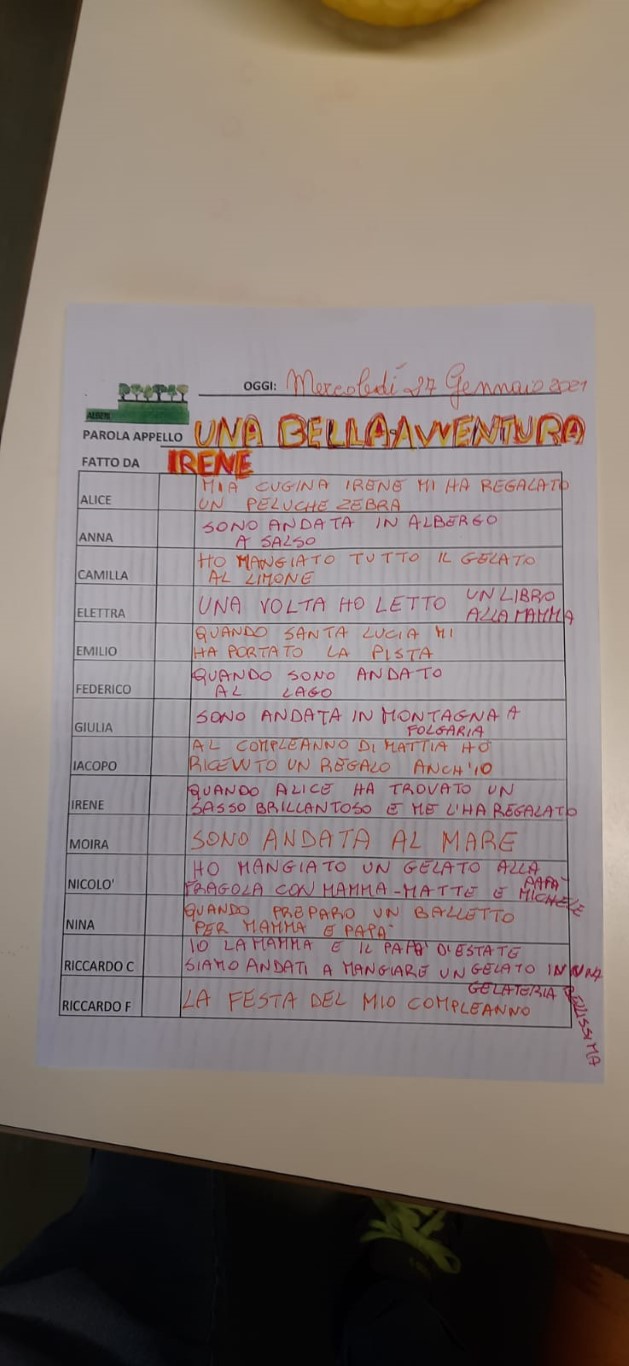 OGGI: Mercoledì 27 Gennaio 2021
ALBERI
PAROLA APPELLO UNA BELLA AVVENTURA
FATTO DA IRENE
ALICE MIA CUGINA IRENE MI HA REGALATO
UN PELUCHE ZEBRA
ANNA SONO ANDATA IN ALBERGO
A SALSO
CAMILLA HO MANGIATO TUTTO IL GELATO
AL LIMONE
ELETTRA UNA VOLTA HO LETTO UN LIBRO
ALLA MAMMA
EMILIO QUANDO SANTA LUCIA MI
HA PORTATO LA PISTA
FEDERICO QUANDO SONO ANDATO
AL LAGO
GIULIA SONO ANDATA IN MONTAGNA A
FOLGARIA
IACOPO AL COMPLEANNO DI MATTIA HO
RICEVUTO UN REGALO ANCH'IO
IRENE QUANDO ALICE HA TROVATO UN
SASSO BRILLANTOSO E ME L'HA REGALATO
MOIRA SONO ANDATA AL MARE
NICOLO' HO MANGIATO UN GELATO ALLA
FRAGOLA CON MAMMA-MATTE E PAPA'
MICHELE
NINA QUANDO PREPARO UN BALLETTO
PER MAMMA E PAPA'
RICCARDO C IO LA MAMMA E IL PAPA' D'ESTATE
SIAMO ANDATI A MANGIARE UN GELATO IN UNA
GELATERIA BELLISSIMA
RICCARDO F LA FESTA DEL MIO COMPLEANNO